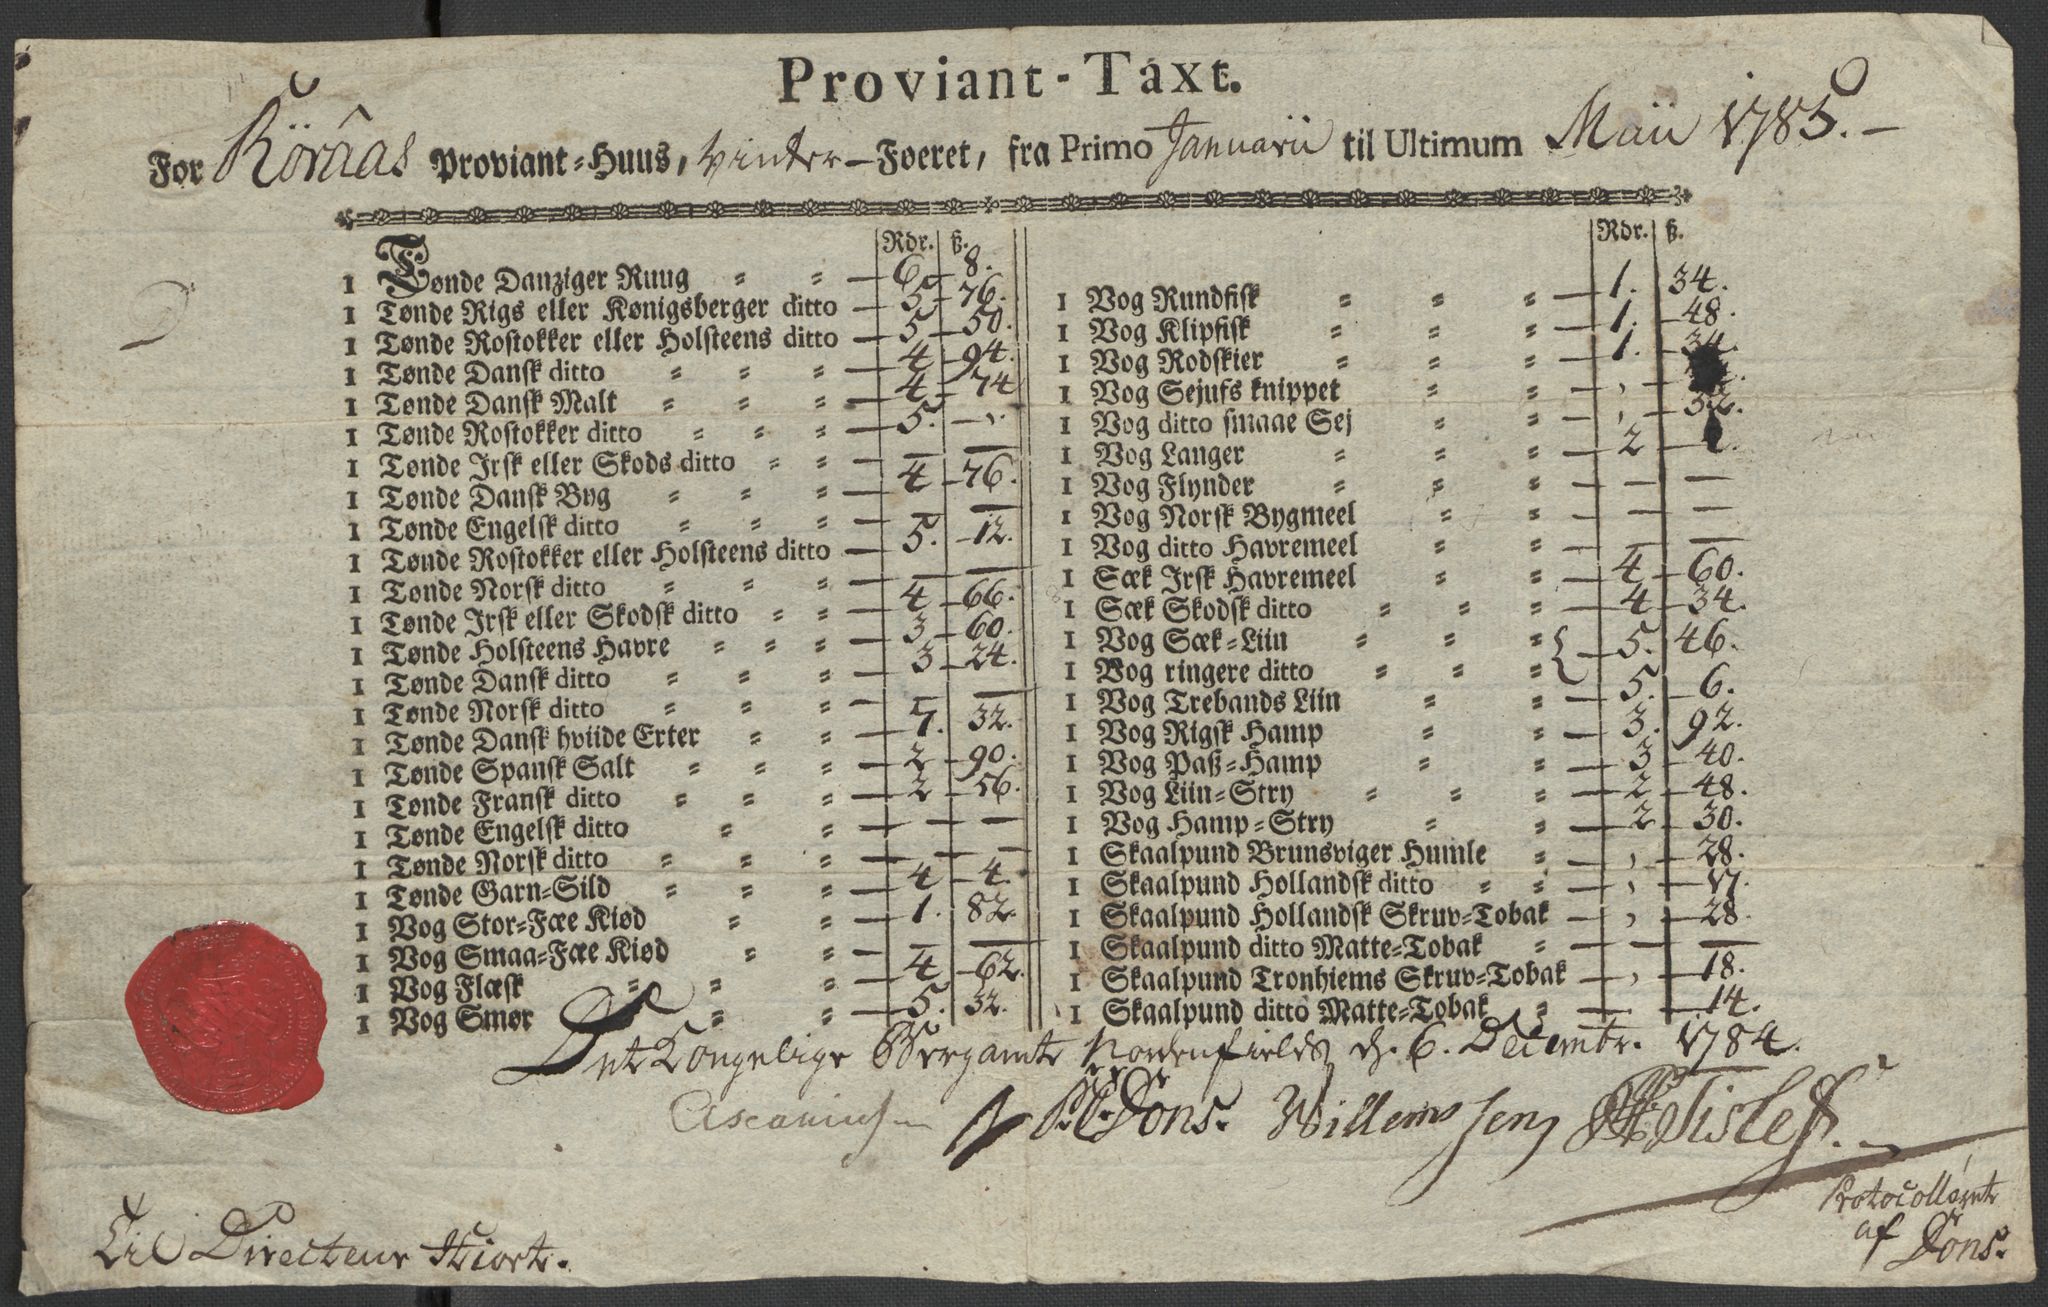 Proviant-Taxt.
For Röraas Proviant=Huus, Vinter-Foeret, fra Primo Januarii til Ultimum Maii 1785.
Rdr. ß.
1 Tønde Danziger Ruug 6 8.
1 Tønde Rigs eller Kønigsberger ditto 5 76.
1 Tønde Rostokker eller Holsteens ditto 5 50.
1 Tønde Dansk ditto 4 94.
1 Tønde Dansk Malt 4 74
1 Tønde Rostokker ditto 5. -
1 Tønde Irsk eller Skods ditto — —
1 Tønde Dansk Byg 4 76.
1 Tønde Engelsk ditto — —
1 Tønde Rostokker eller Holsteens ditto 5. 12.
1 Tønde Norsk ditto — —
1 Tønde Irsk eller Skodsk ditto 4 66.
1 Tønde Holsteens Havre 3 60.
1 Tønde Dansk ditto 3 24.
1 Tønde Norsk ditto — —
1 Tønde Dansk hviide Erter 7. 32.
1 Tønde Spansk Salt 2 90.
1 Tønde Fransk ditto 2 56.
1 Tønde Engelsk ditto — —
1 Tønde Norsk ditto — —
1 Tønde Garn=Sild 4 4.
1 Vog Stor=Fæe Kiød 1. 82.
1 Vog Smaa=Fæe Kiød — —
1 Vog Flæsk 4 62.
1 Vog Smør 5. 32.
Rdr. ß.
1 Vog Rundfisk 1. 34.
1 Vog Klipfisk 1. 48.
1 Vog Rodskier 1. 34.
1 Vog Sejufs knippet ,
1 Vog ditto smaae Sej , 32.
1 Vog Langer 2
1 Vog Flynder — —
1 Vog Norsk Bygmeel — —
1 Vog ditto Havremeel — —
1 Sæk Irsk Havremeel 4 60.
1 Sæk Skodsk ditto 4 34.
1 Vog Sæk=Liin { 5. 46.
1 Vog ringere ditto
1 Vog Trebands Liin 5. 6.
1 Vog Rigsk Hamp 3. 92.
1 Vog Paß=Hamp 3 40.
1 Vog Liin=Stry 2 48.
1 Vog Hamp=Stry 2 30.
1 Skaalpund Brunsviger Humle , 28.
1 Skaalpund Hollandsk ditto , 17.
1 Skaalpund Hollandsk Skruv=Tobak , 28.
1 Skaalpund ditto Matte=Tobak — —
1 Skaalpund Tronhiems Skruv=Tobak , 18.
1 Skaalpund ditto Matte=Tobak — 14.
Det Kongelige Bergamt Nordenfields d. 6. Decembr. 1784.
Ascanius Dons. Willemssen
Til Directeur Hiort.
Protocolleret
af Dons.